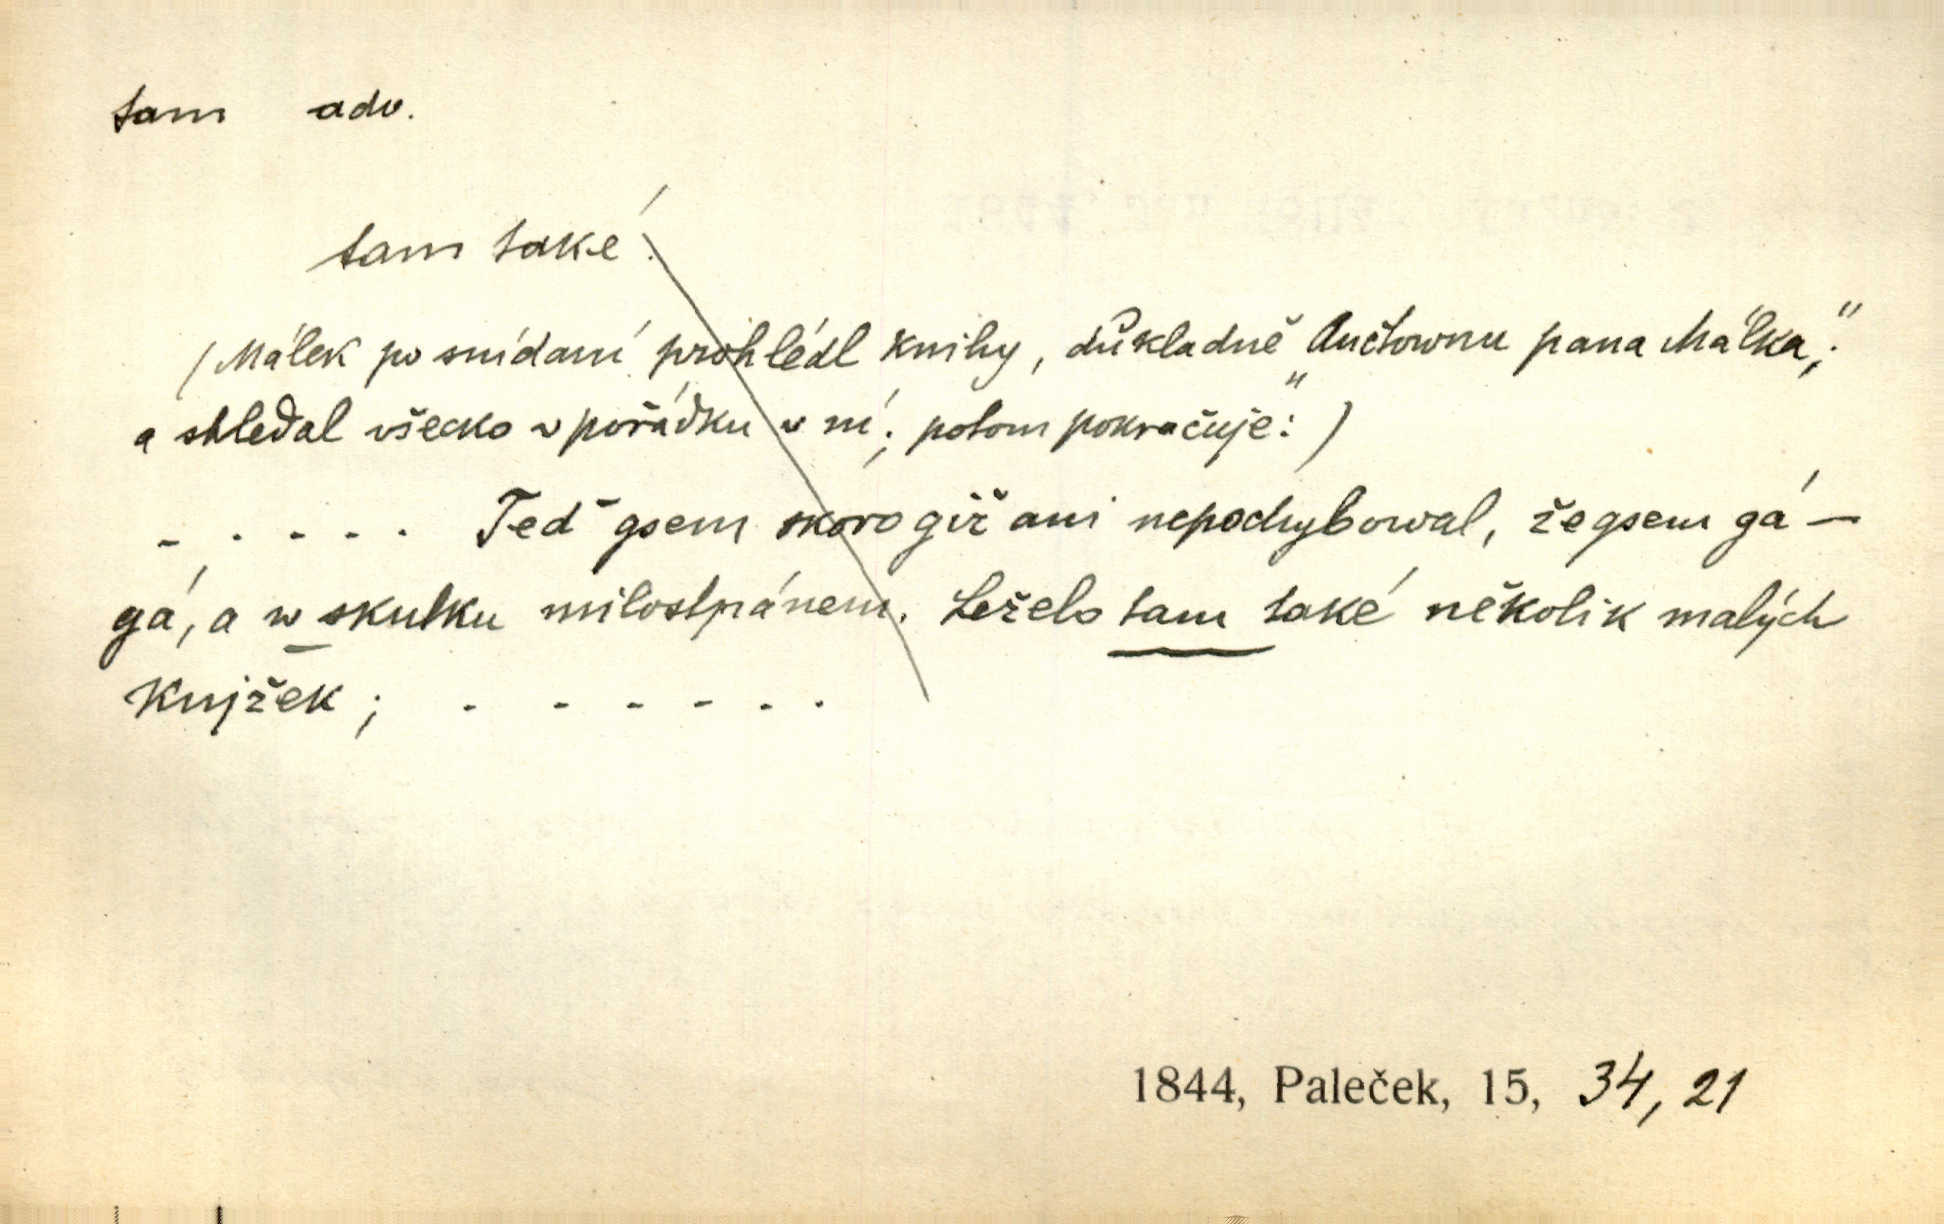 tam adv.
tam také!
(Málek po snídaní prohlédl knihy, důkladně „Aučtownu pana Málka,"
a shledal všecko v pořádku v ní; potom pokračuje:)
- . - - - . Teď gsem skoro giž ani nepochybowal, že gsem gá —
gá, a w skutku milostpánem. Leželo tam také několik malých
Knjžek; . - - - . .
1844, Paleček, 15, 34, 21